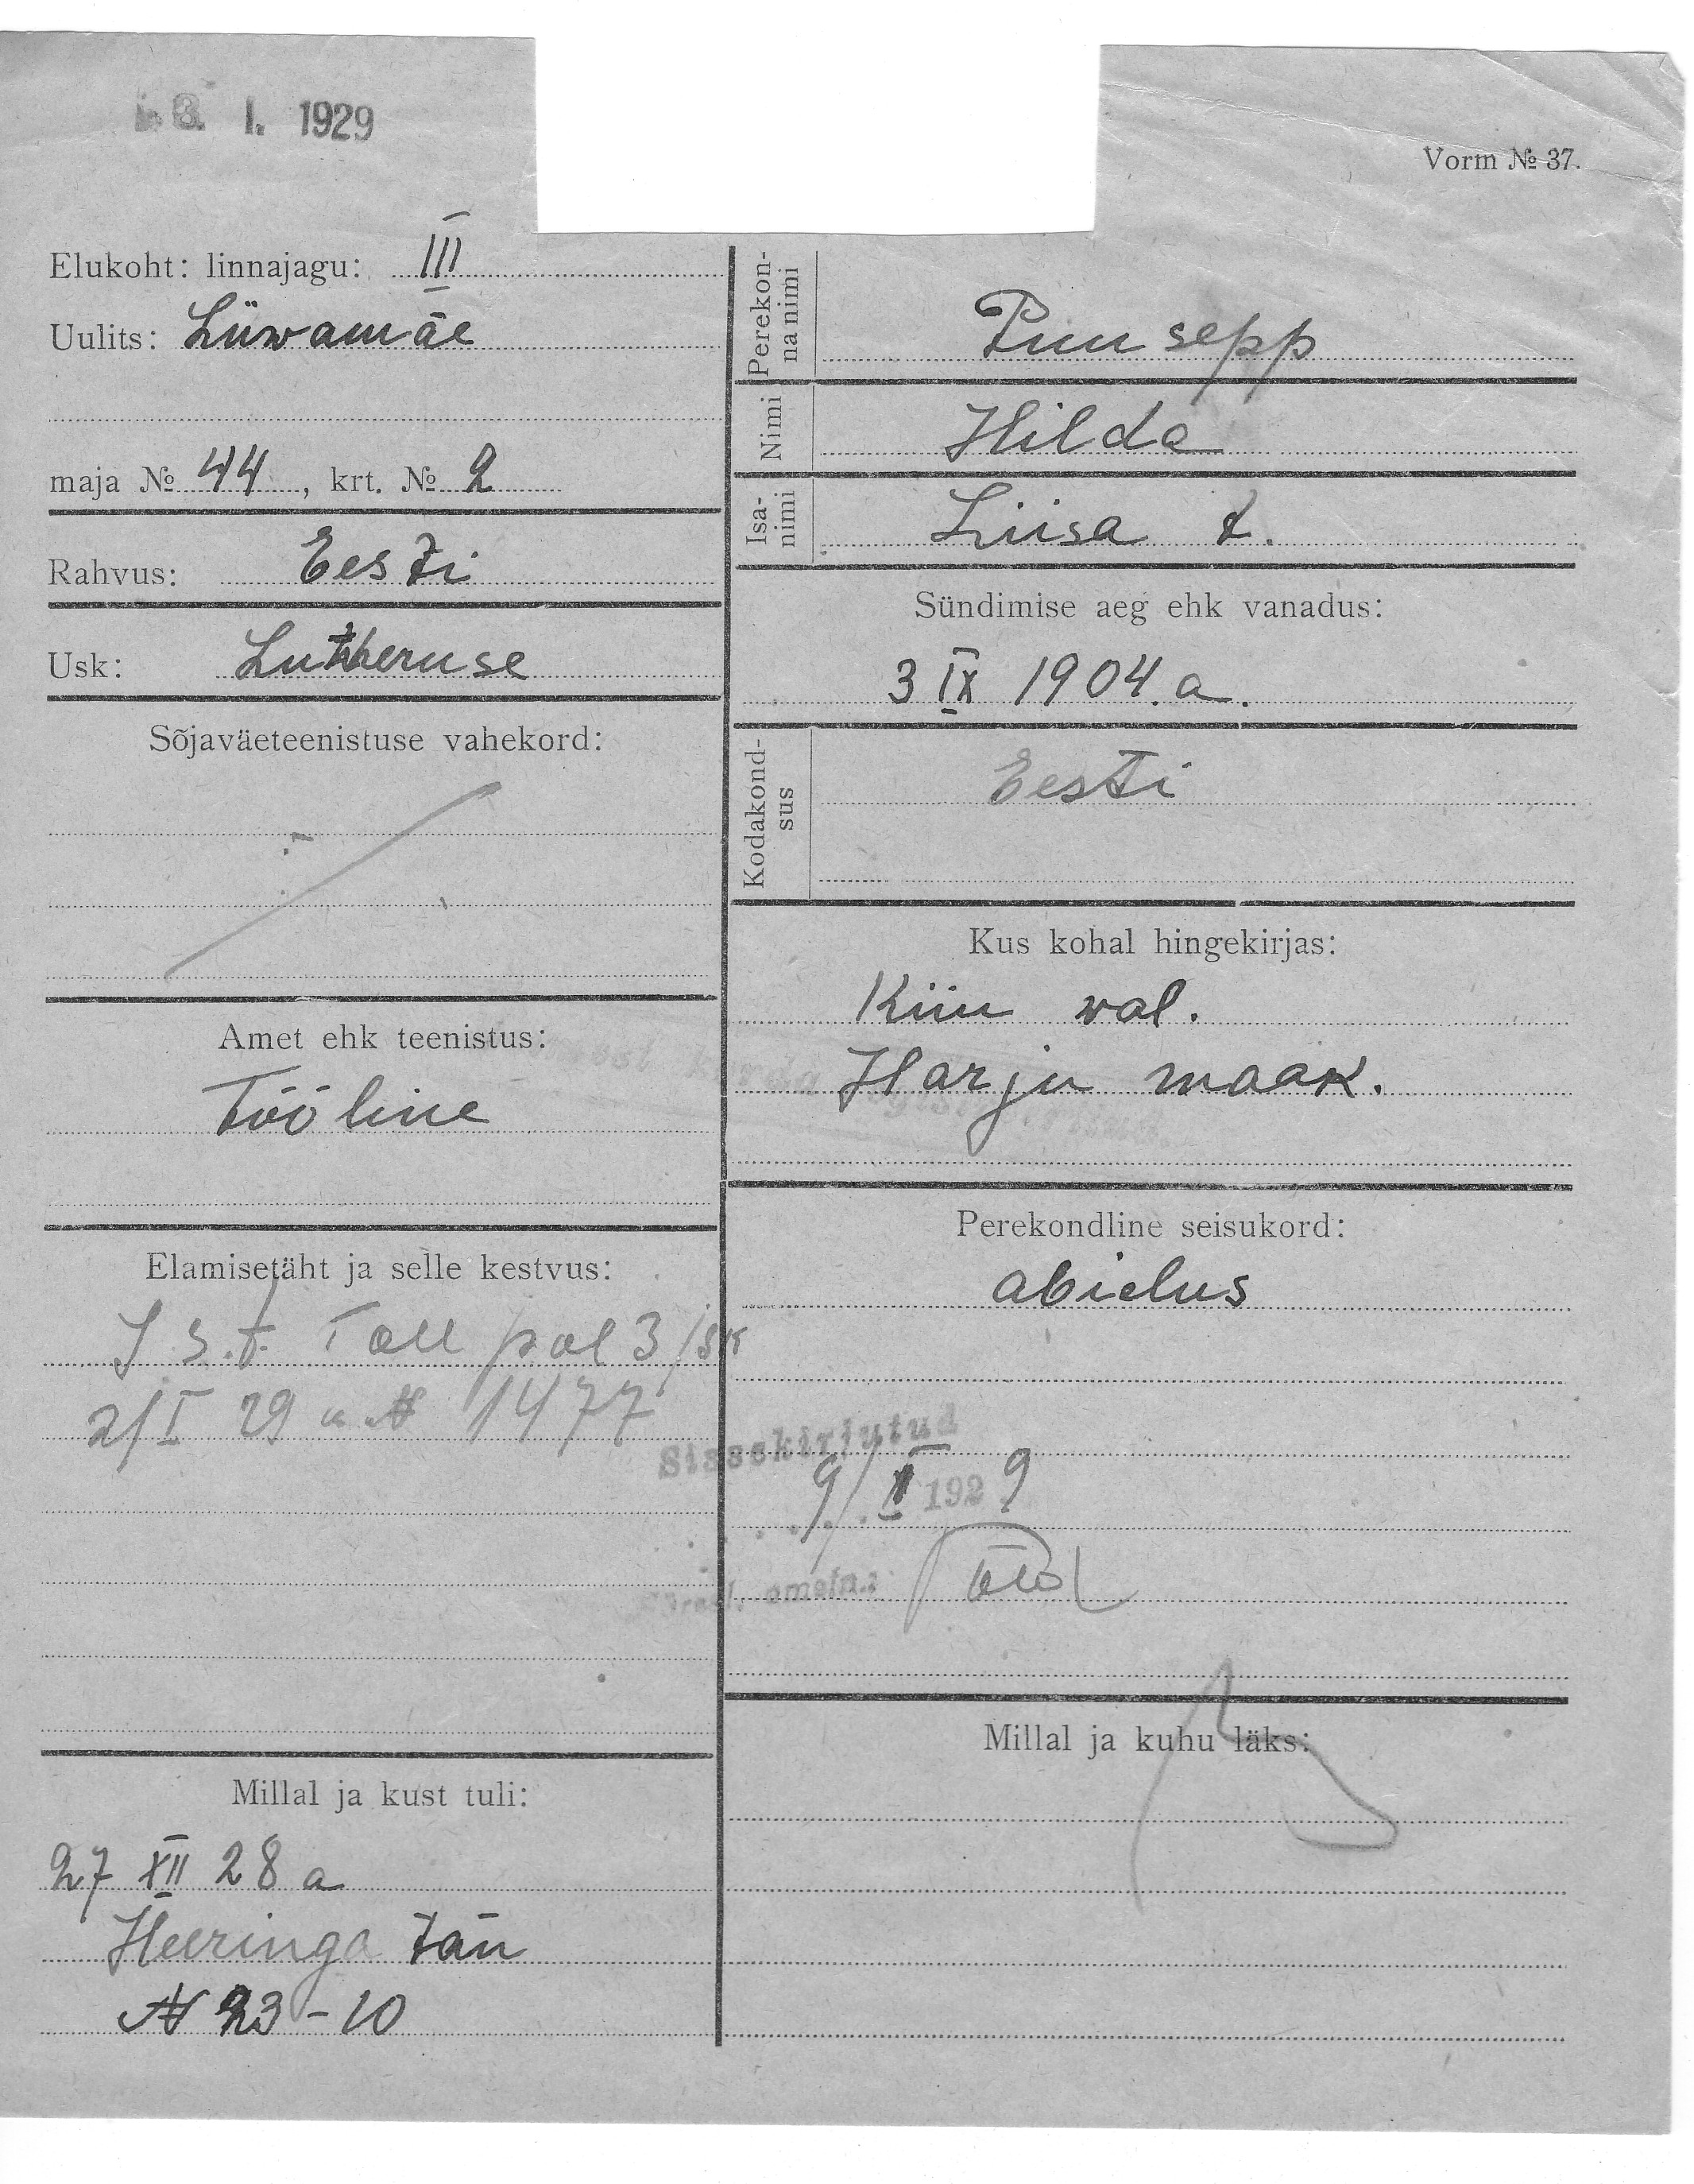 3. I. 1929
Vorm № 37.
Elukoht: linnajagu: III
Uulits: Liiwamäe
maja № 44, krt. № 2
Rahvus: Eesti
Usk: Lutheruse
Sõjaväeteenistuse vahekord:
Amet ehk teenistus:
Tööline
Elamisetäht ja selle kestvus:
I s.t. Tall pol 3 jsk
2/I 29 a № 1477
Millal ja kust tuli:
27 XII 28 a
Heeringa tän
№ 23-10
Perekonna nimi
Puusepp
Nimi
Hilda
Isanimi
Liisa t.
Sündimise aeg ehk vanadus:
3 IX 1904. a.
Kodakondsus
Eesti
Kus kohal hingekirjas:
Kiiu wal.
Harju maak.
Perekondline seisukord:
abielus
Sissekirjutud
9/I 1929
ametn.:
Millal ja kuhu läks: